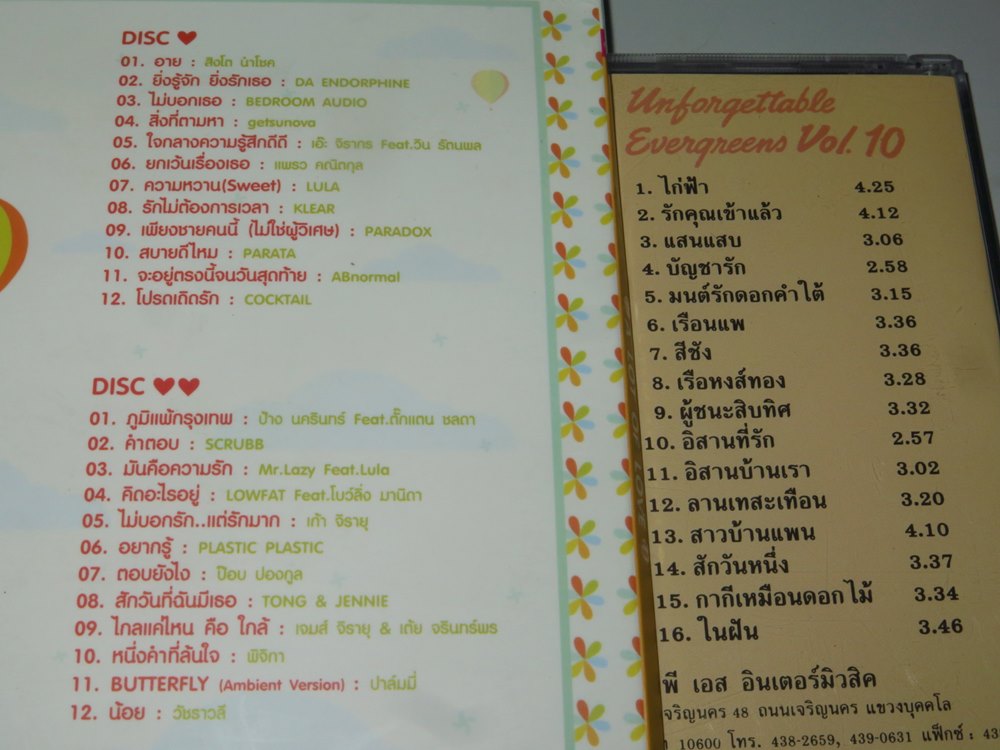 DISC ♥
01. อาย : สิงโต นำโชค
02. ยิ่งรู้จัก ยิ่งรักเธอ : DA ENDORPHINE
03. ไม่บอกเธอ : BEDROOM AUDIO
04. สิ่งที่ตามหา : getsunova
05. ใจกลางความรู้สึกดีดี : เอ๊ะ จิรากร Feat.วิน รัตนพล
06. ยกเว้นเรื่องเธอ : แพรว คณิตกุล
07. ความหวาน(Sweet) : LULA
08. รักไม่ต้องการเวลา : KLEAR
09. เพียงชายคนนี้ (ไม่ใช่ผู้วิเศษ) : PARADOX
10. สบายดีไหม : PARATA
11. จะอยู่ตรงนี้จนวันสุดท้าย : ABnormal
12. โปรดเถิดรัก : COCKTAIL
DISC ♥♥
01. ภูมิแพ้กรุงเทพ : ป้าง นครินทร์ Feat.ตั๊กแตน ชลดา
02. คำตอบ : SCRUBB
03. มันคือความรัก : Mr.Lazy Feat.Lula
04. คิดอะไรอยู่ : LOWFAT Feat.โบว์ลิ่ง มานิดา
05. ไม่บอกรัก..แต่รักมาก : เก้า จิรายุ
06. อยากรู้ : PLASTIC PLASTIC
07. ตอบยังไง : ป๊อบ ปองกูล
08. สักวันที่ฉันมีเธอ : TONG & JENNIE
09. ไกลแค่ไหน คือ ใกล้ : เจมส์ จิรายุ & เต้ย จรินทร์พร
10. หนึ่งคำที่ล้นใจ : พิจิกา
11. BUTTERFLY (Ambient Version) : ปาล์มมี่
12. น้อย : วัชราวลี
Unforgettable
Evergreens Vol. 10
1. ไก่ฟ้า 4.25
2. รักคุณเข้าแล้ว 4.12
3. แสนแสบ 3.06
4. บัญชารัก 2.58
5. มนต์รักดอกคำใต้ 3.15
6. เรือนแพ 3.36
7. สีชัง 3.36
8. เรือหงส์ทอง 3.28
9. ผู้ชนะสิบทิศ 3.32
10. อิสานที่รัก 2.57
11. อิสานบ้านเรา 3.02
12. ลานเทสะเทือน 3.20
13. สาวบ้านแพน 4.10
14. สักวันหนึ่ง 3.37
15. กากีเหมือนดอกไม้ 3.34
16. ในฝัน 3.46
พี เอส อินเตอร์มิวสิค
จริญนคร 48 ถนนเจริญนคร แขวงบุคคโล
10600 โทร. 438-2659, 439-0631 แฟ็กซ์ : 43